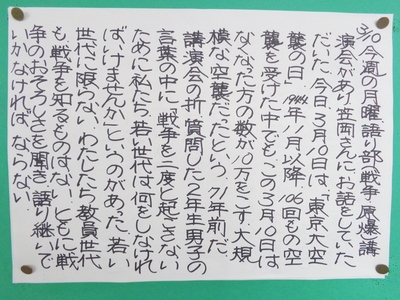 3/10 今週の月曜、語り部、戦争・原爆講
演会があり笠岡さんにお話をしていた
だいた。今日、3月10日は、「東京大空
襲の日」1944年11月以降、106回もの空
襲を受けた中でもこの3月10日は
なくなった方の数が10万をこす、大規
模な空襲だったという。71年前だ。
講演会の折、質問した2年生男子の
言葉の中に、戦争を二度と起さない
ために私たち若い世代は何をしなけれ
ば、いけませんか、というのがあった。若い
世代に限らない。わたしたち教員世代
も、戦争を知るものはない。ともに戦
争のおそろしさを聞き、語り継いで
いかなければ、ならない。